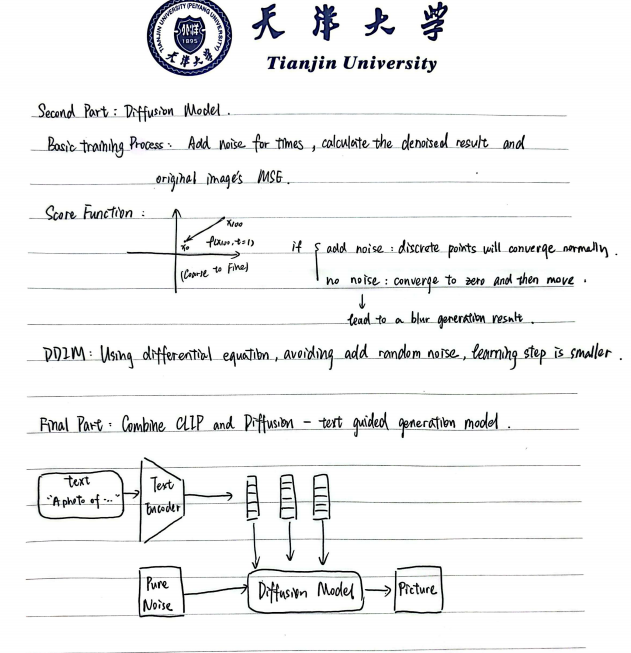 TIANJIN UNIVERSITY (PEIYANG UNIVERSITY)
1895
天津大学
天津大学
Tianjin University
Second Part : Diffusion Model .
Basic training Process : Add noise for times , calculate the denoised result and
original image's MSE .
Score Function :
x100
x0 f(x100, t=1)
(Coarse to Fine)
if { add noise : discrete points will converge normally .
no noise : converge to zero and then move .
↓
lead to a blur generation result .
DDIM : Using differential equation, avoiding add random noise, learning step is smaller .
Final Part : Combine CLIP and Diffusion - text guided generation model .
text
"A photo of ..."
Text
Encoder
Pure
Noise
Diffusion Model
Picture